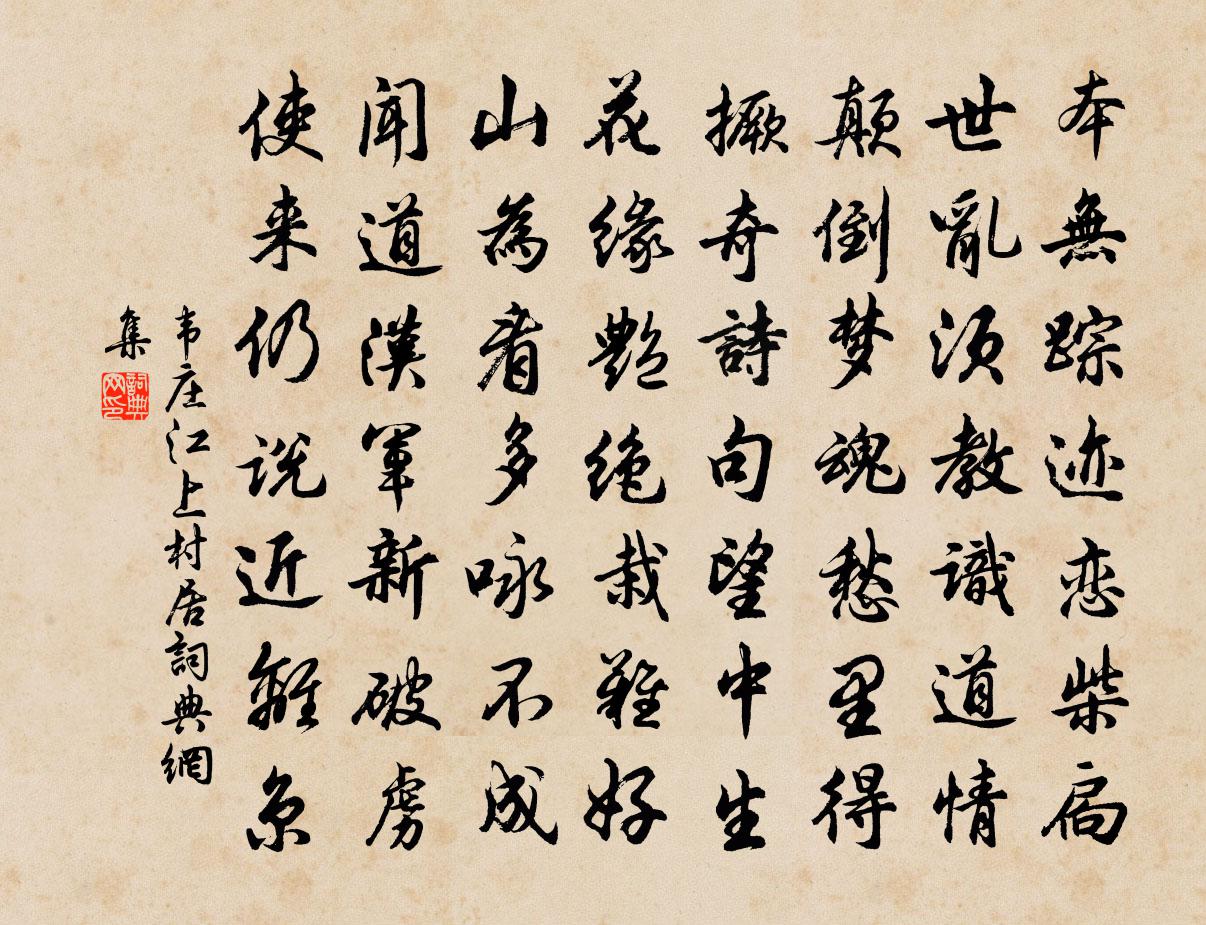 本無踪迹恋柴扃
世亂須教識道情
颠倒梦魂愁里得
撅奇詩句望中生
花緣艷絶栽難好
山為看多咏不成
聞道漢軍新破虜
使来仍説近離京
韦庄江上村居詞典網
集
詞典网印